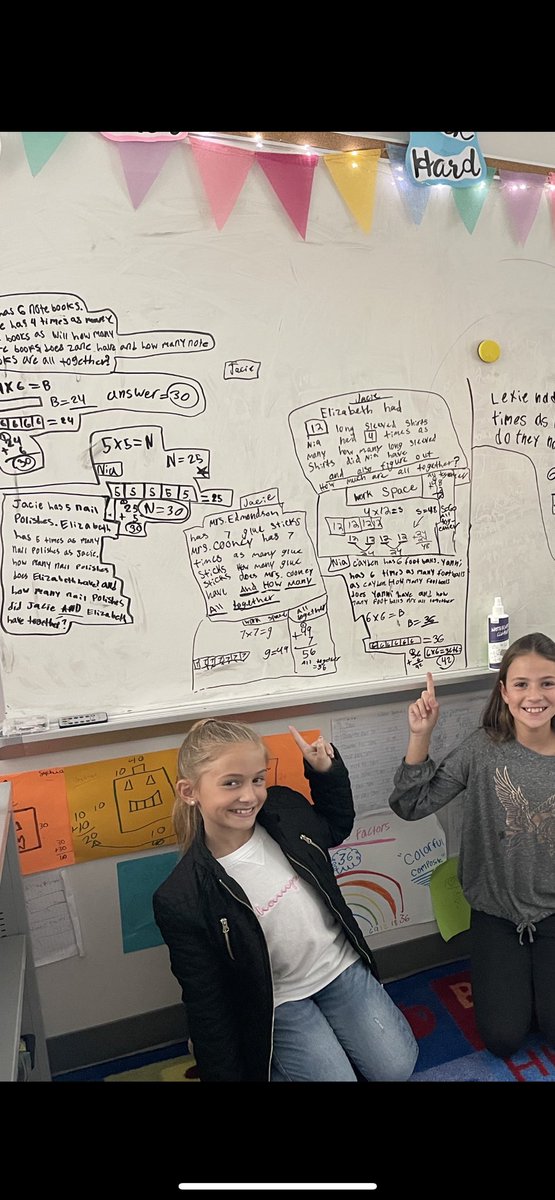 Hard
has 6 notebooks.
has 4 times as many
books as will how many
books does zane have and how many note
books are all together?
4x6=B
B=24 answer=30
6 6 6 6 = 24
24
+ 6
30
Jacie
5x5=N
N=25
Nia
5 5 5 5 5 = 25
25
+ 5
30
N=30
Jacie has 5 nail
Polishes. Elizabeth
has 5 times as many
nail polishes as Jacie.
how many nail Polishes
does Elizabeth have and
how many nail Polishes
did Jacie AND Elizabeth
have together?
Jacie
Mrs. Edmondson
has 7 glue sticks
Mrs. Cooney has 7
times as many glue
sticks how many glue
sticks does Mrs. Cooney
have and how many
all together
work space
7x7=g
7 7 7 7 7 7 7
g=49
All
together
+49
7
56
All together
=56
Jacie
Elizabeth had
12 long sleeved shirts
Nia had 4 times as
many how many long sleeved
Shirts did Nia have
and also figure out
How much are all together?
Work Space
4x12=s s=48
12 12 12 12
12 12 12 12
24 24
48
Nia
Caylen has 6 foot balls. Yanni
has 6 times as many foot balls
as caylen How many footballs
does Yanni have and how
many foot balls are all together
6x6=B
B=36
6 6 6 6 6 6 =36
6x6=36+6
42
Lexie had
times as
do they
Sophia
30
30
+30
60
10 10
10
+10
20
10
10
Factors
36
"Colorful
Compost